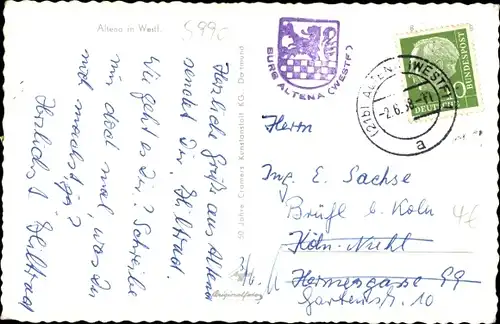 Altena in Westf.
599c
Herzliche Grüße aus Altena
sendet Dir, Hiltrad.
Wie geht es Dir? Schreibe
mir doch mal, was Du
noch machst,
Herzlichst
Hiltrad
50 Jahre Cramers Kunstanstalt KG Dortmund
BURG ALTENA (WESTF)
(21b) ALTENA (WESTF)
-2.6.58
a
DEUTSCHE BUNDESPOST
10
Herrn
Ing. E. Sachse
Brühl b. Köln
Köln-
Hermesgasse 99
Gartenstr. 10
4€